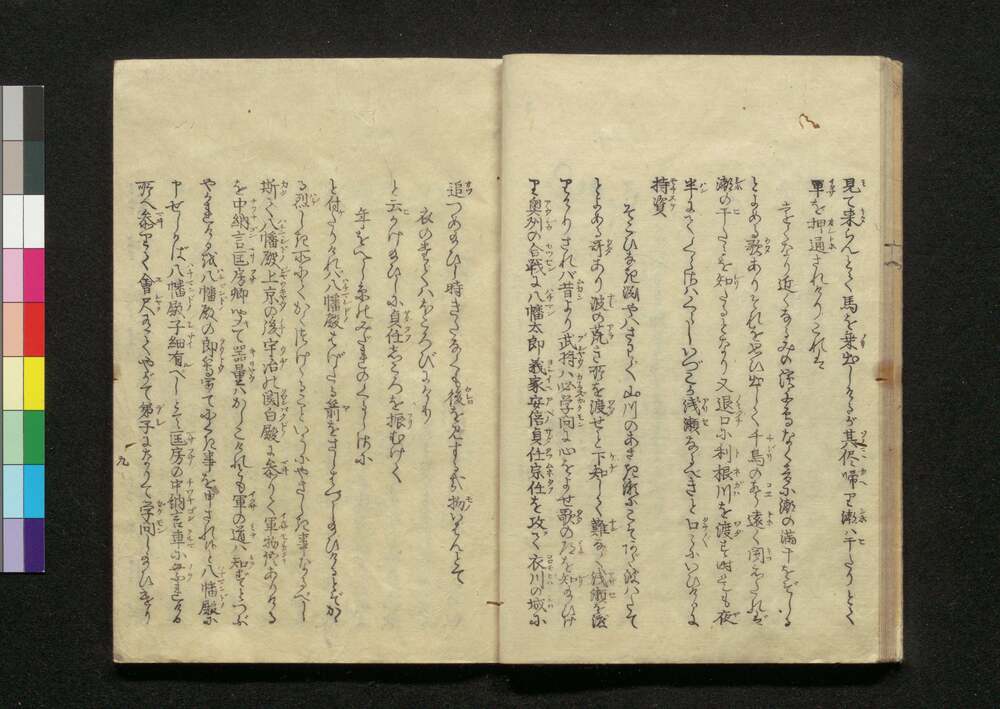 見て来らんとて馬を乗出しけるが其侭帰り潮ハ干たりとて
軍を押通されけりこれハ
遠くなり近くなるみの濱千鳥なく音に潮の満干をぞしる
とよめる歌ありそれを思ひ出して千鳥のこゑ遠く聞えたれば
潮の干たるを知たるとなり又退口に利根川を渡す時も夜
半にてくらさハくらしいづこが浅瀬なるべきと口々にいひけるに
持資
そこひなき淵やハさわぐ山川のあさき瀬にこそあだ波ハたて
とよめる哥あり波の荒き所を渡せと下知して難なく利根を渡
りけりされバ昔より武将ハ必学問に心をよせ歌の道を知給ひけ
り奥州の合戦に八幡太郎義家安倍貞任宗任を攻て衣川の城に
追つめ給ひし時きたなくも後を見するか物いはんとて
衣のたてハほころびにけり
と云かけ給ひしに貞任しころを振むけて
年をへし糸のみだれのくるしさに
と付たりけれバ八幡殿はげたる箭をさしはづし給ひけるとぞか
る烈しき所にてかくなさけあることいかにやさしき事ならずや
斯て八幡殿上京の後宇治の関白殿に参りて軍物語ありける
を中納言匡房卿聞て器量ハかしこけれども軍の道ハ知ずとつぶ
やかれけるを八幡殿の郎等聞てにくき事を申されけると八幡殿に
申せしかば八幡殿子細有べしとて匡房の中納言車に乗れける
所へ参りて會尺有てやがて弟子になりて学問し給ひけり
九